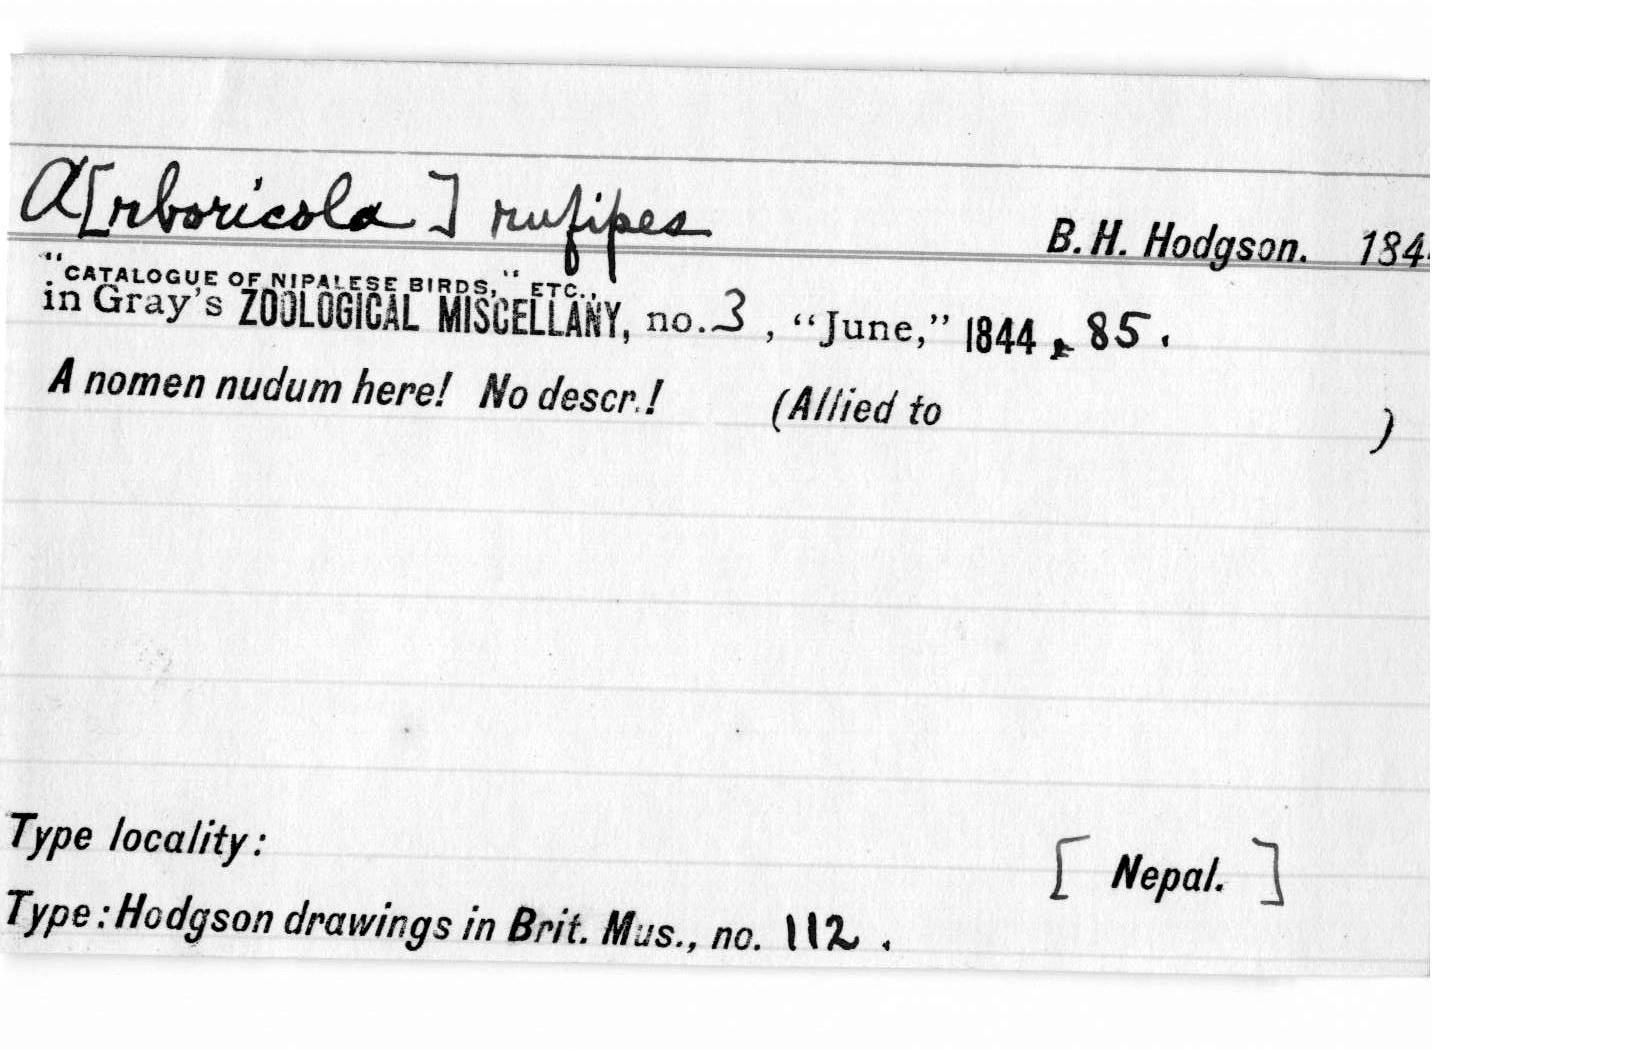 A[rboricola] rufipes
B. H. Hodgson. 184
"CATALOGUE OF NIPALESE BIRDS," ETC.,
in Gray's ZOOLOGICAL MISCELLANY, no. 3, "June," 1844 p. 85.
A nomen nudum here! No descr.! (Allied to )
Type locality: [Nepal.]
Type: Hodgson drawings in Brit. Mus., no. 112.